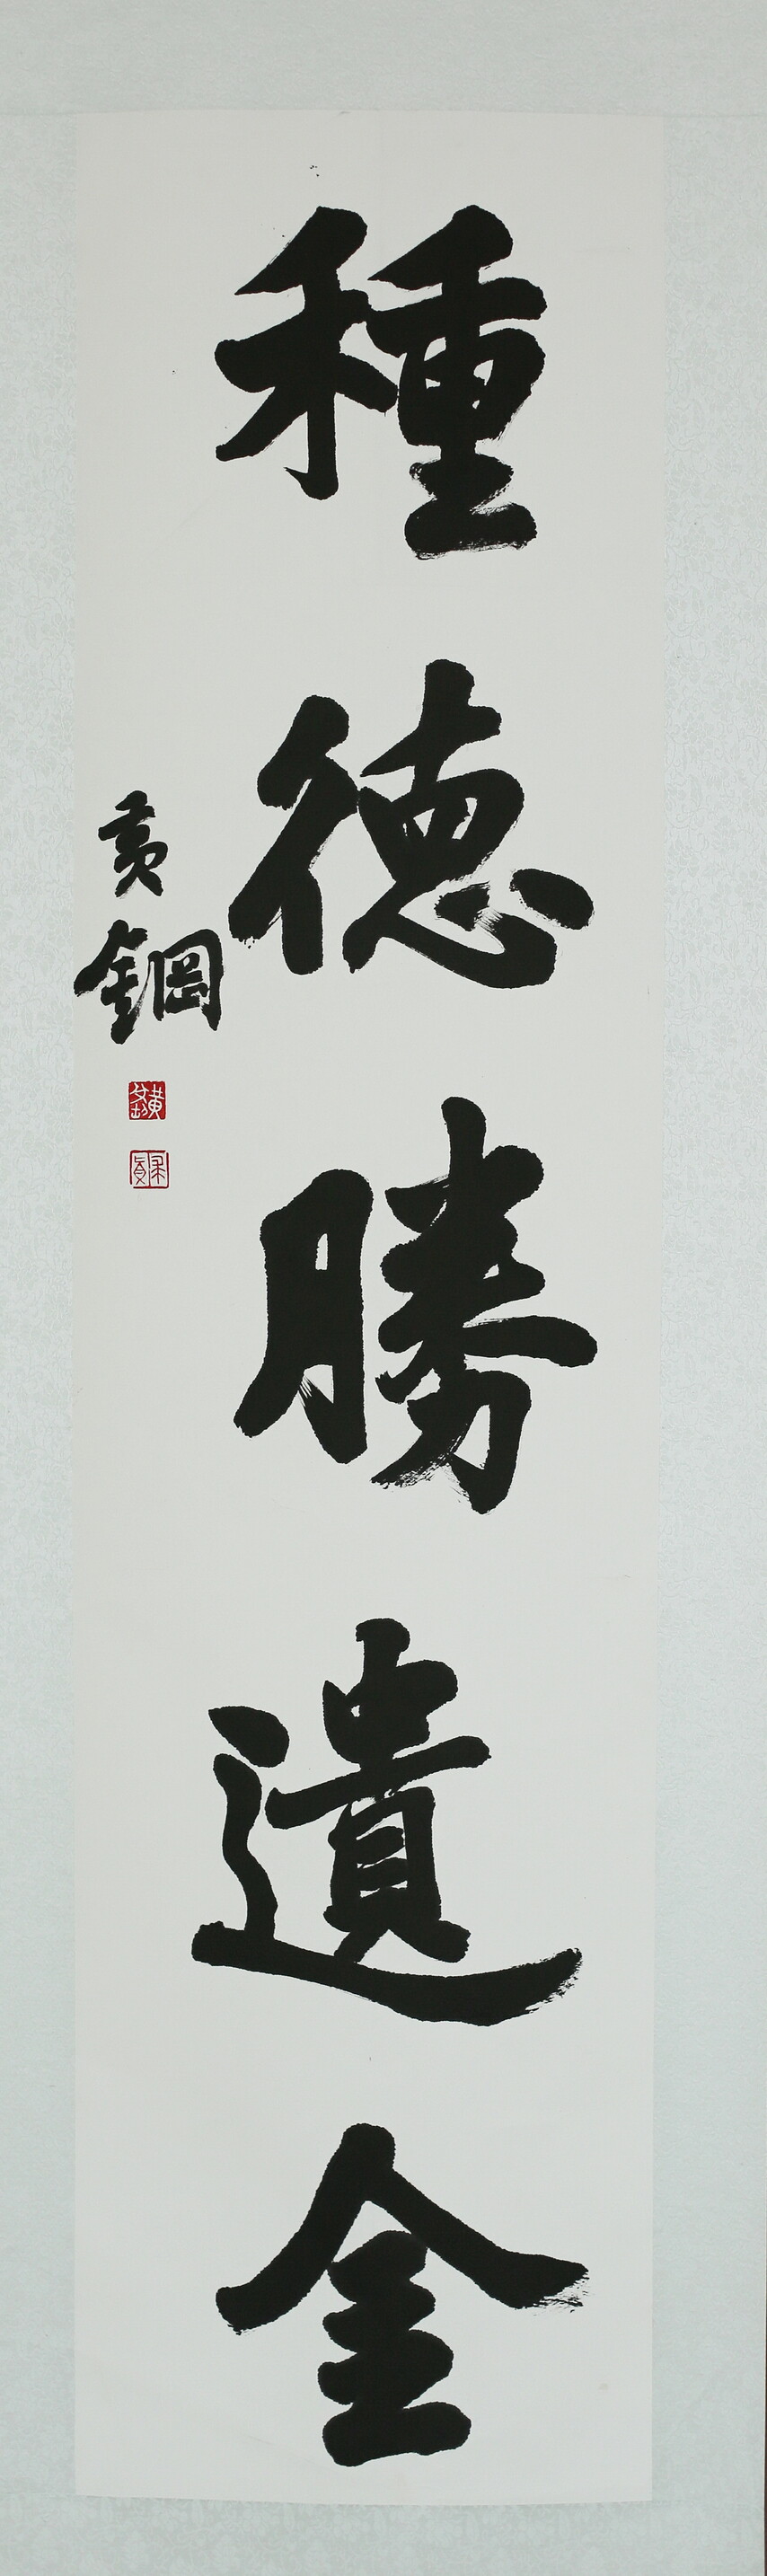 種德勝遺金
黃鋼